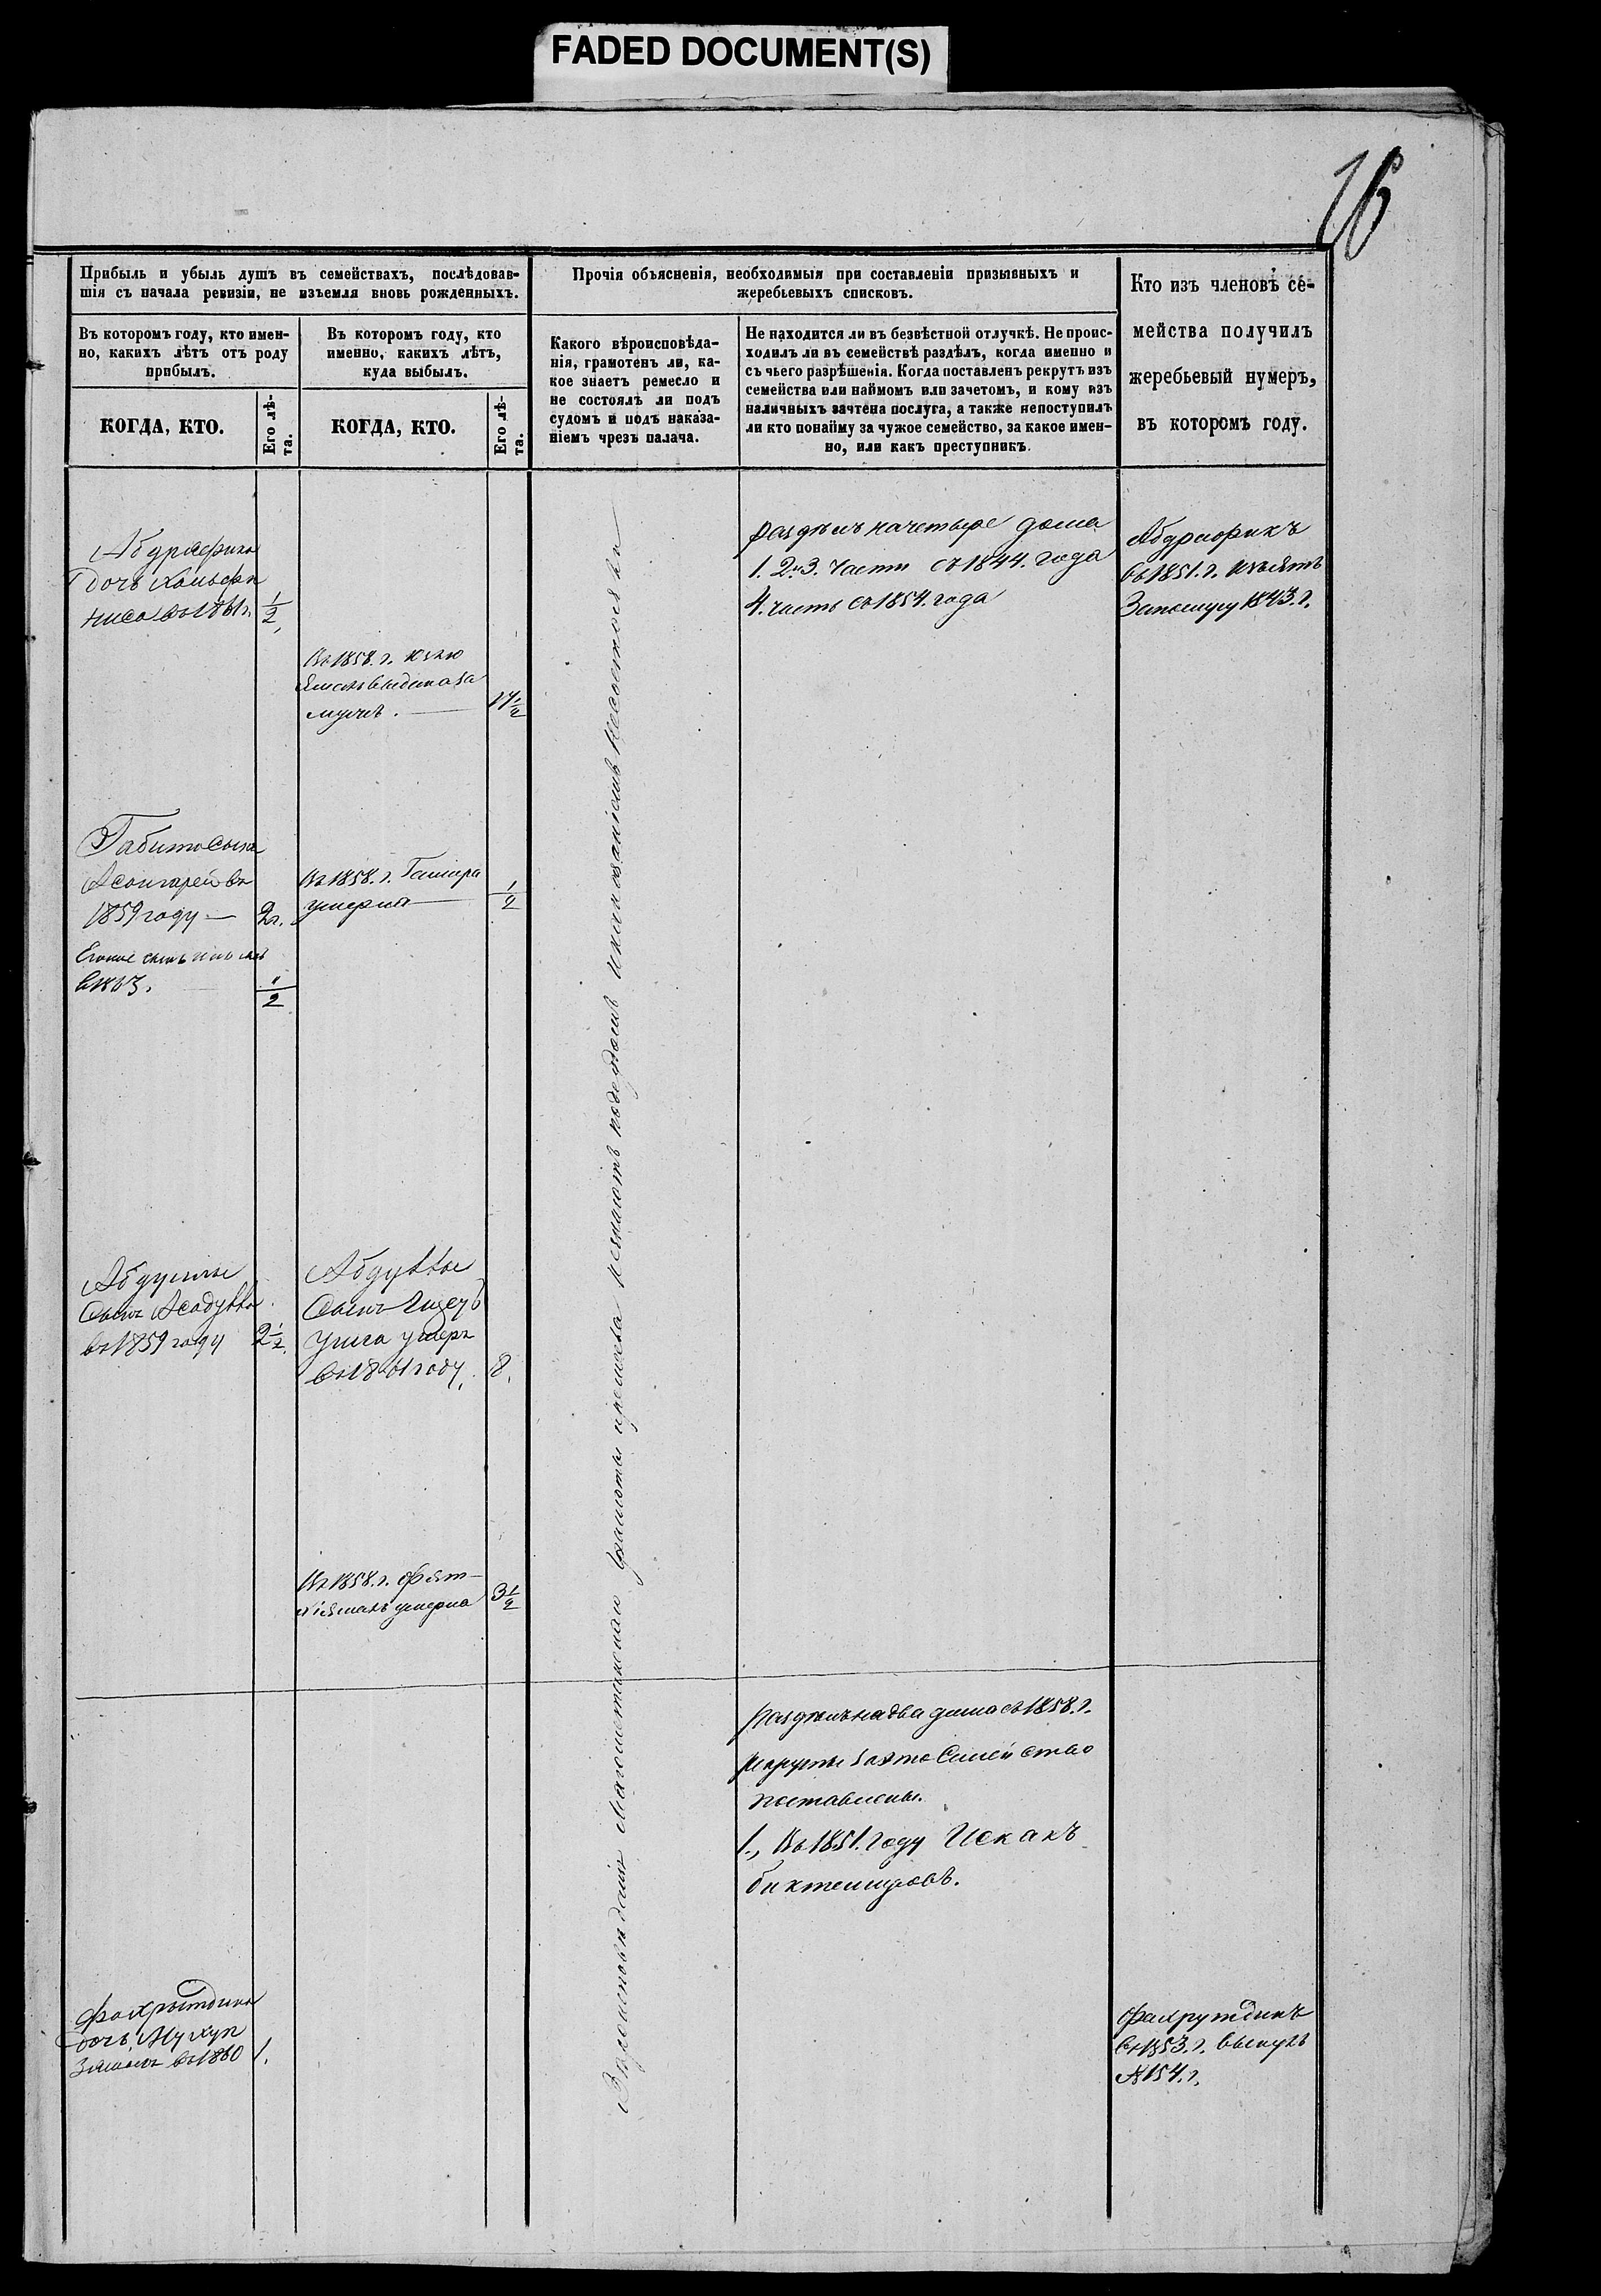 FADED DOCUMENT(S)
16
Прибыль и убыль душъ въ семействахъ, послѣдовав-
шія съ начала ревизіи, не изъемля вновь рожденныхъ.
Въ которомъ году, кто имен-
но, какихъ лѣтъ отъ роду
прибылъ.
Въ которомъ году, кто
именно, какихъ лѣтъ,
куда выбылъ.
КОГДА, КТО.
Его лѣ-
та.
КОГДА, КТО.
Его лѣ-
та.
Прочія объясненія, необходимыя при составленіи призывныхъ и
жеребьевыхъ списковъ.
Какого вѣроисповѣда-
нія, грамотенъ ли, ка-
кое знаетъ ремесло и
не состоялъ ли подъ
судомъ и подъ наказа-
ніемъ чрезъ палача.
Не находится ли въ безвѣстной отлучкѣ. Не проис-
ходилъ ли въ семействѣ раздѣлъ, когда именно и
съ чьего разрѣшенія. Когда поставленъ рекрутъ изъ
семейства или наймомъ или зачетомъ, и кому изъ
наличныхъ зачтена послуга, а также непоступилъ
ли кто понайму за чужое семейство, за какое имен-
но, или какъ преступникъ.
Кто изъ членовъ се-
мейства получилъ
жеребьевый нумеръ,
въ которомъ году.
Абдрафика
дочь
въ 1861 г. 1/2
Въ 1858. г.
выдана за
мужъ. — 17 1/2
Габита сынъ
въ
1859 году — 2 г.
сынъ
1/2
Въ 1858. г.
умерла — 1/2
Абдуллы
Сынъ Асадулла
въ 1859 году 2 1/2
Абдуллы
Сынъ
умеръ
въ 1861 году, 8.
Въ 1858. г.
умерла 3 1/2
Фахрытдина
дочь
въ 1860 1.
Вѣроисповѣданія Магометанскаго грамоты ремесла незнаютъ подсудомъ и наказаніемъ несостояли
раздѣлъ на четыре дома
1. 2 и 3. части съ 1844. года
4. часть съ 1854. года
раздѣлъ на два дома съ 1858. г.
рекруты за это Семейство
поставлены.
1., Въ 1851. году Искакъ
Биктемировъ.
Абдрафикъ
въ 1851. г. изъятъ
За послугу 1843. г.
Фахрутдинъ
въ 1853. г. вынулъ
№ 154. г.